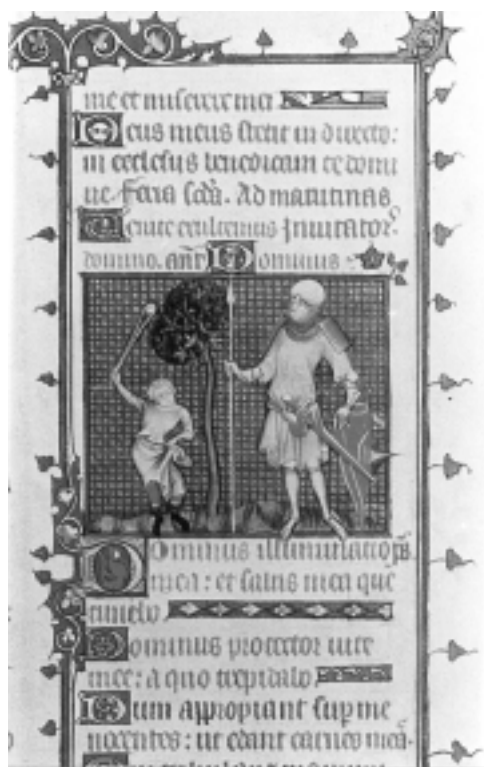 me et miserere mei
Deus meus stetit in directo:
in ecclesiis benedicam te domi
ne. Feria scda. Ad matutinas
Venite exultemus Invitator.
domino. ant Dominus
Dominus illuminatio
mea: et salus mea que
timebo
Dominus protector uite
mee: a quo trepidabo
Dum appropiant sup me
nocentes: ut edant carnes meas.